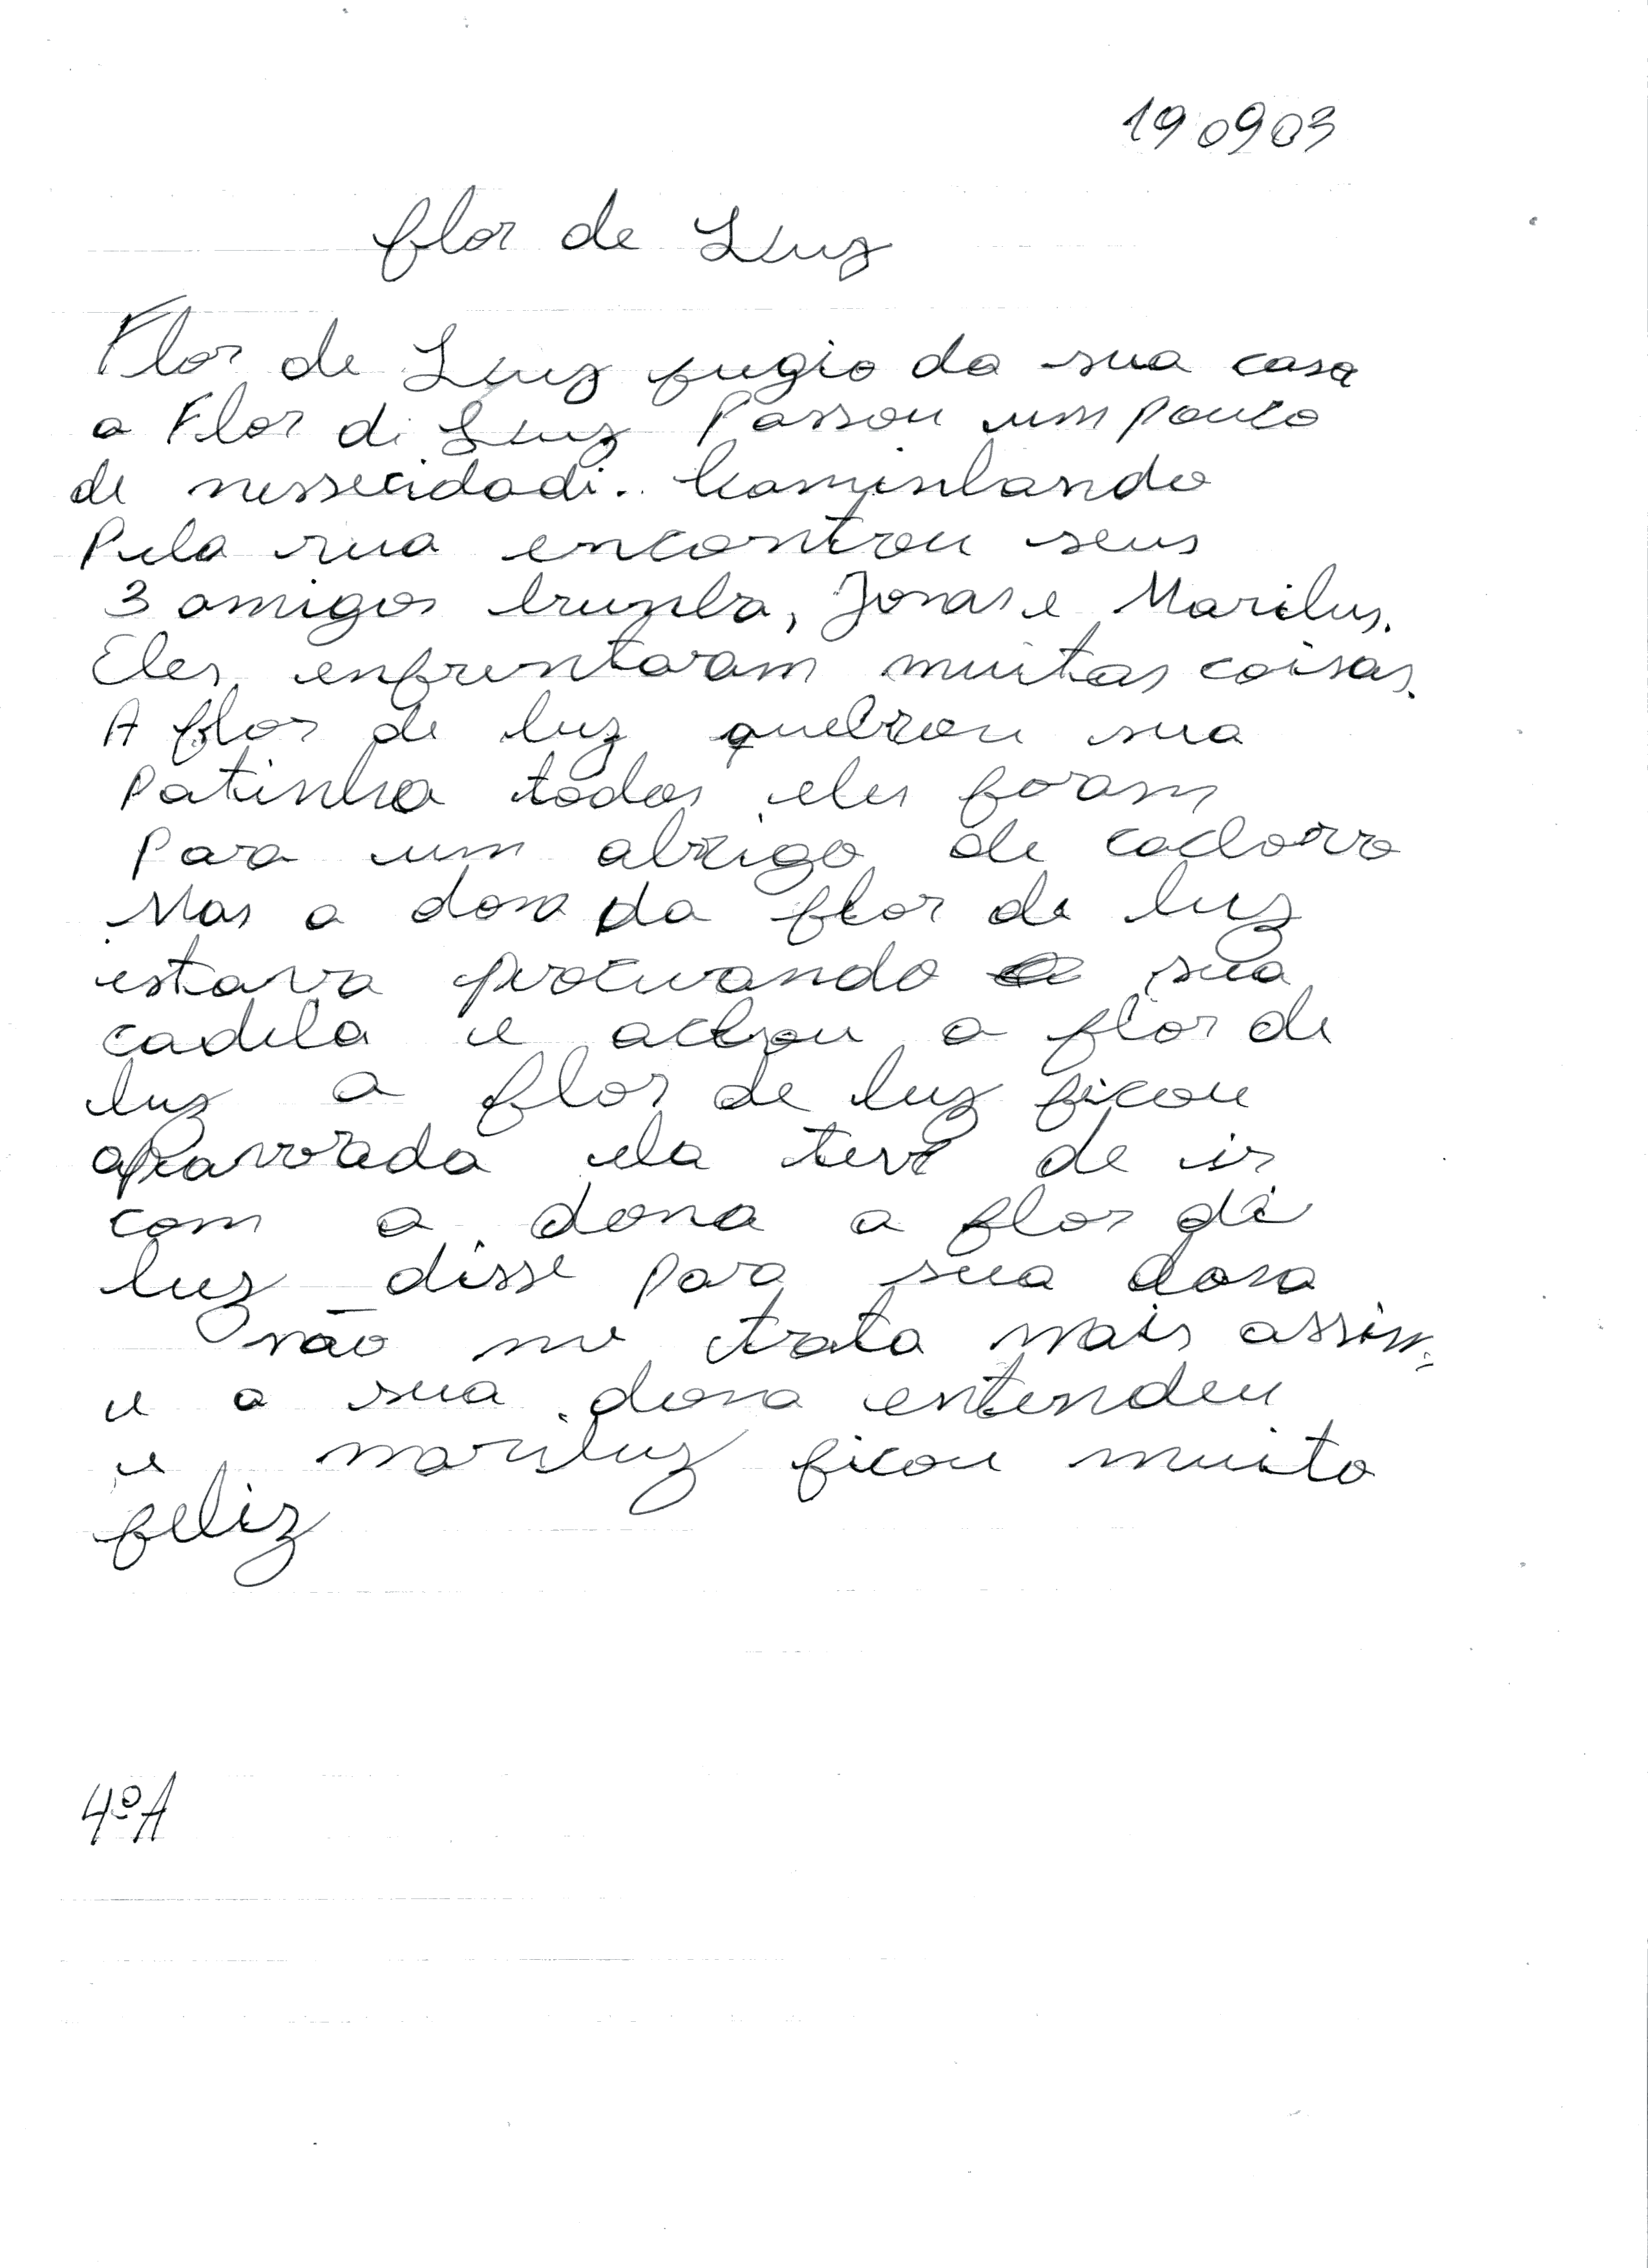 190903
flor de Luz
Flor de Luz fugio da sua casa
a Flor di Luz Passou um pouco
de nessecidadi. Caminhando
Pela rua encontrou seus
3 amigos Jonas e Marilus.
Eles enfrentaram muitas coisas.
A flor de luz quebrou sua
Patinha todos eles foram
Para um abrigo de cachorro
Mas a dona da flor de luz
estava procurando sua
cadela e achou a flor de
luz a flor de luz ficou
apavorada ela teve de ir
com a dona a flor de
luz disse para sua dona
– não me trata mais assim.
e a sua dona entendeu
e mariluz ficou muito
feliz
4ºA